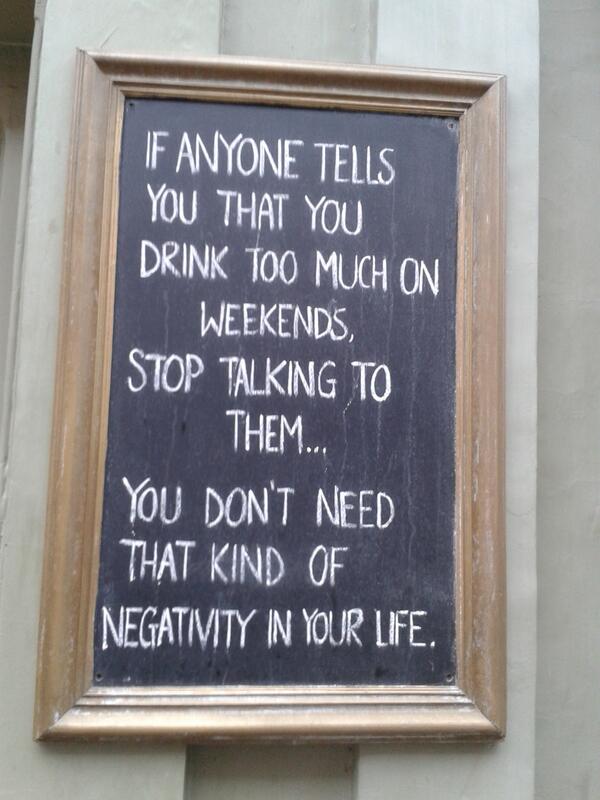 IF ANYONE TELLS
YOU THAT YOU
DRINK TOO MUCH ON
WEEKENDS,
STOP TALKING TO
THEM...
YOU DON'T NEED
THAT KIND OF
NEGATIVITY IN YOUR LIFE.